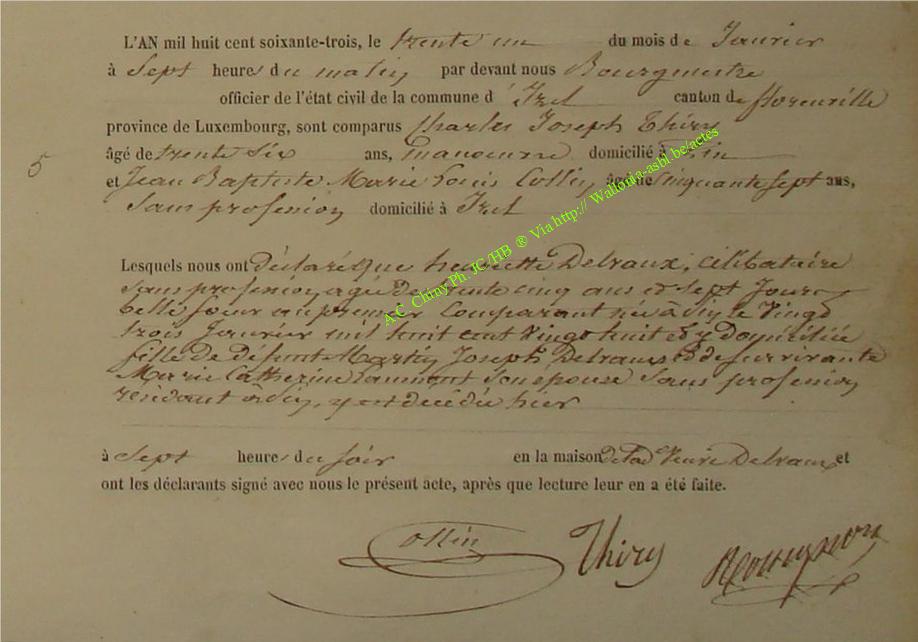 L'AN mil huit cent soixante-trois, le trente un du mois de Janvier
à Sept heures du matin par devant nous Bourgmestre
officier de l'état civil de la commune d' Izel canton de florenville
province de Luxembourg, sont comparus Charles Joseph Thiry
5 âgé de trente six ans, manoeuvre domicilié à
et Jean Baptiste Marie Louis Collin âgé de Cinquante sept ans,
Sans profession domicilié à Izel
A.C. Chiny Ph. JC/HB ® Via http:// Wallonia-asbl.be/actes
Lesquels nous ont déclaré que henriette Delvaux, célibataire
Sans profession, agée de trente cinq ans et sept Jours
belle Soeur au premier Comparant née à le Vingt
trois Janvier mil huit cent Vingt huit et y Domiciliée
fille De défunt Martin Joseph Delvaux et de survivante
Marie Catherine Son epouse Sans profession
résidant à y est décédée hier
à Sept heures du soir en la maison de la d Veuve Delvaux et
ont les déclarants signé avec nous le présent acte, après que lecture leur en a été faite.
Collin Thiry